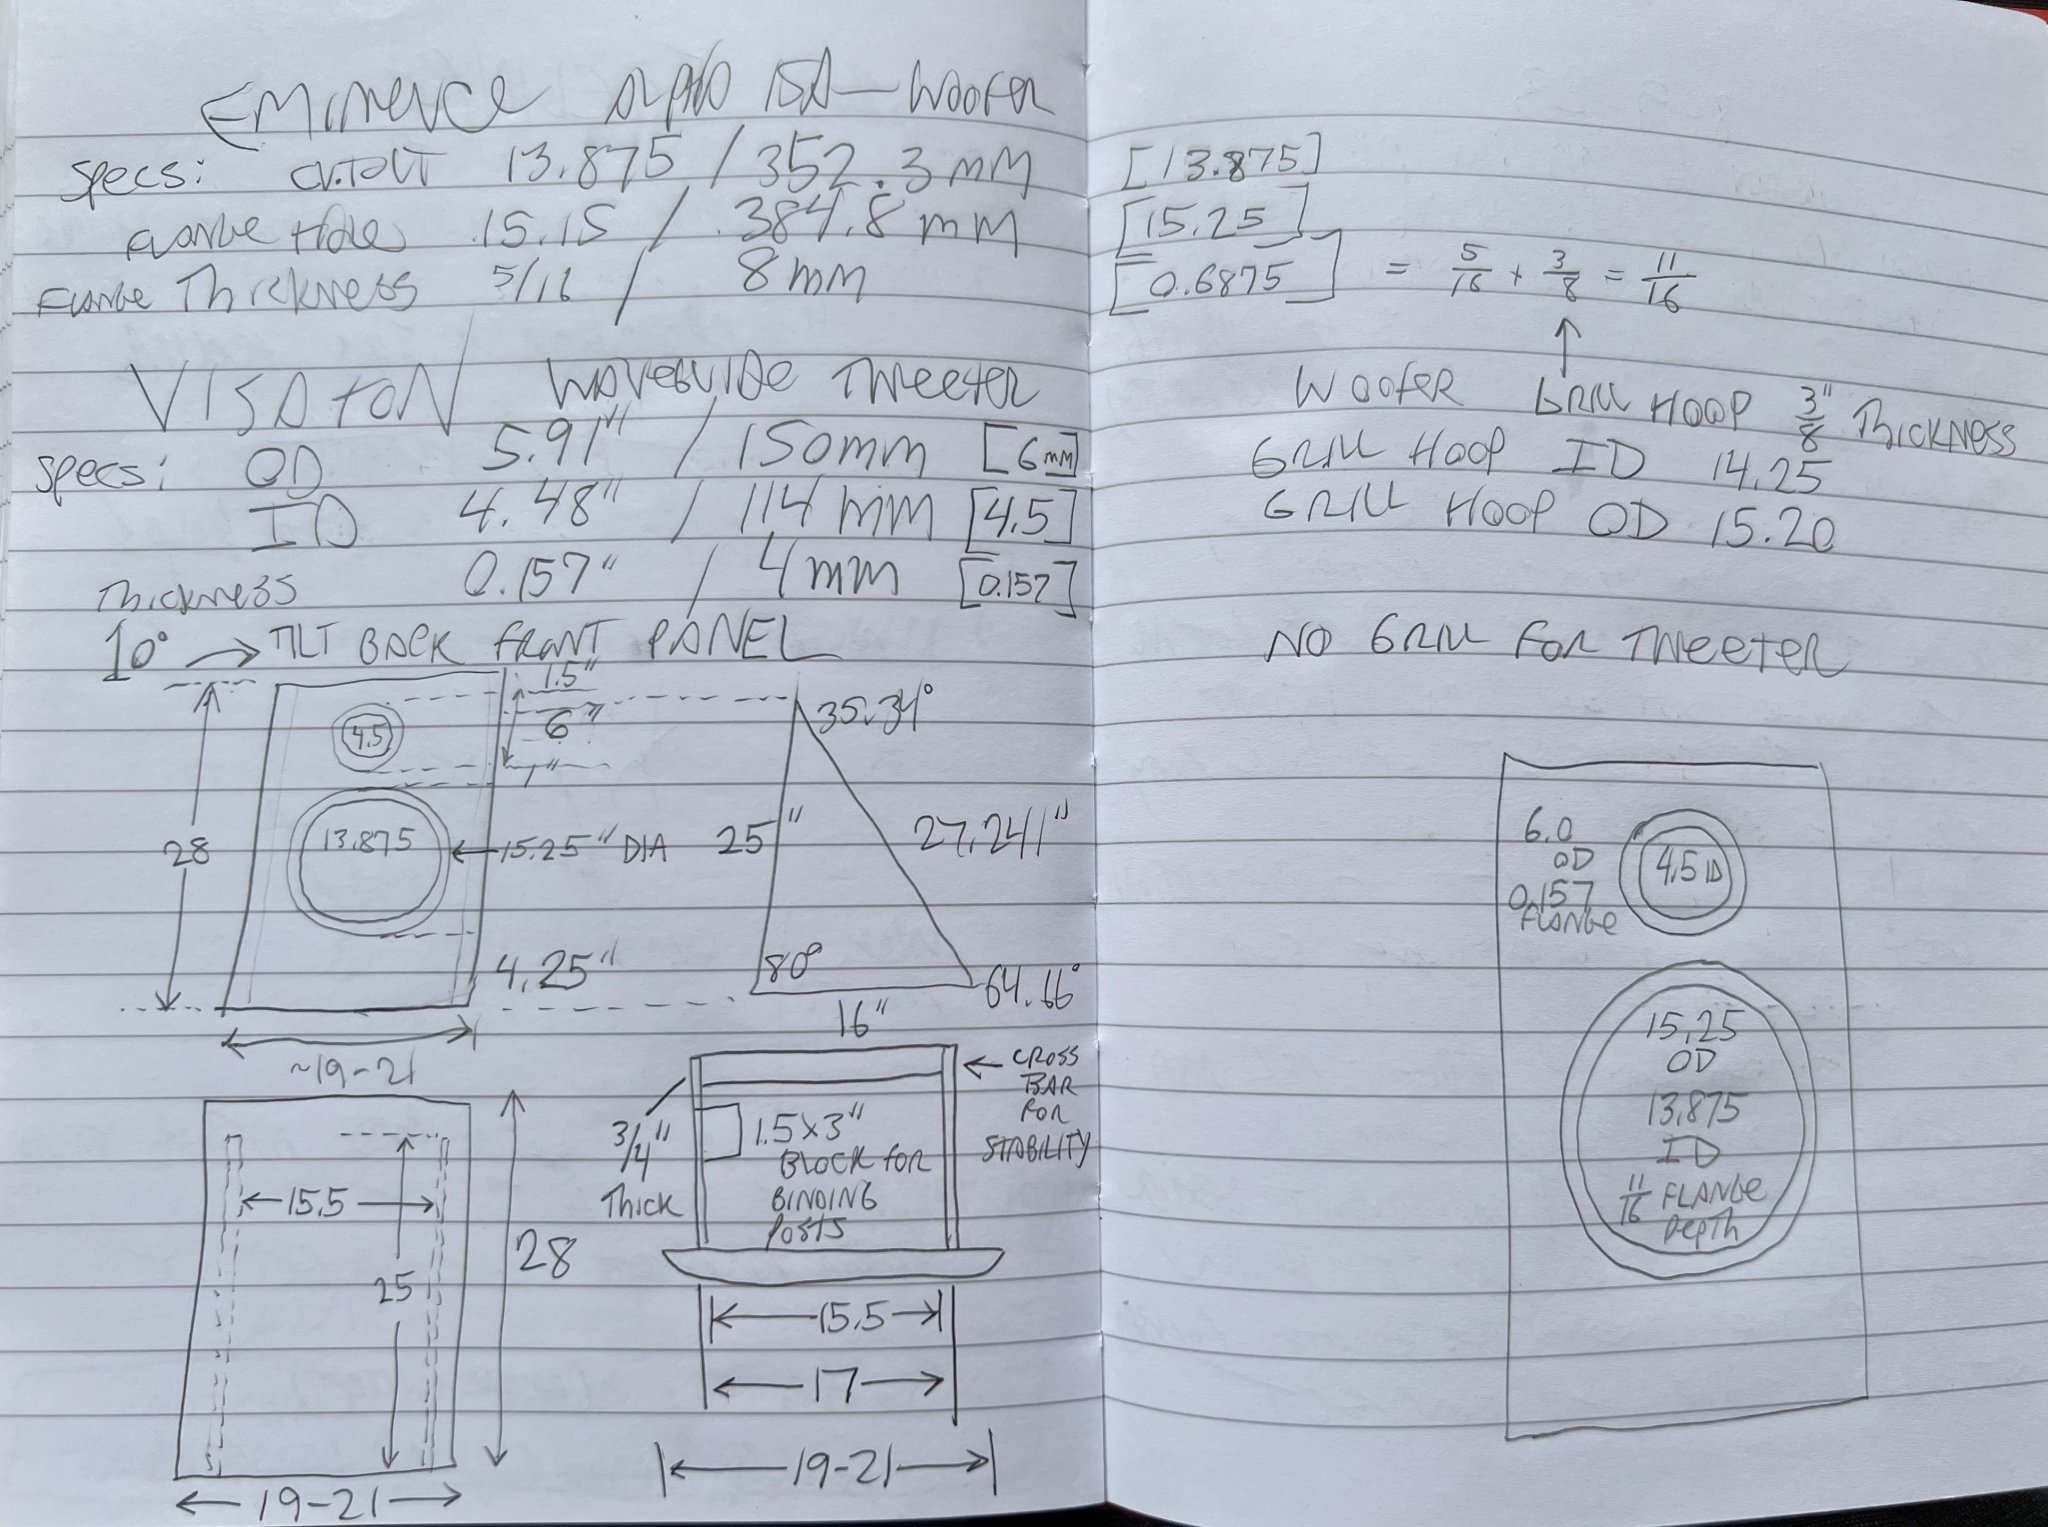 EMINENCE ALPHA 15A — WOOFER
SPECS: CUTOUT 13.875 / 352.3 mm [13.875]
FLANGE HOLE 15.15 / 384.8 mm [15.25]
FLANGE THICKNESS 5/16 / 8 mm [0.6875] = 5/16 + 3/8 = 11/16
VISATON WAVEGUIDE TWEETER
SPECS: OD 5.91" / 150mm [6mm]
ID 4.48" / 114 mm [4.5]
THICKNESS 0.157" / 4 mm [0.157]
10° → TILT BACK FRONT PANEL
1.5"
6"
1"
4.5
28
13.875
← 15.25" DIA
4.25"
~19-21
35.34°
25"
27.241"
80°
64.66°
16"
15.5
25
28
19-21
3/4"
THICK
1.5 x 3"
BLOCK FOR
BINDING
POSTS
← CROSS
BAR
FOR
STABILITY
15.5
17
19-21
↑
WOOFER GRILL HOOP 3/8" THICKNESS
GRILL HOOP ID 14.25
GRILL HOOP OD 15.20
NO GRILL FOR TWEETER
6.0
OD
0.157
FLANGE
4.5 ID
15.25
OD
13.875
ID
11/16 FLANGE
DEPTH